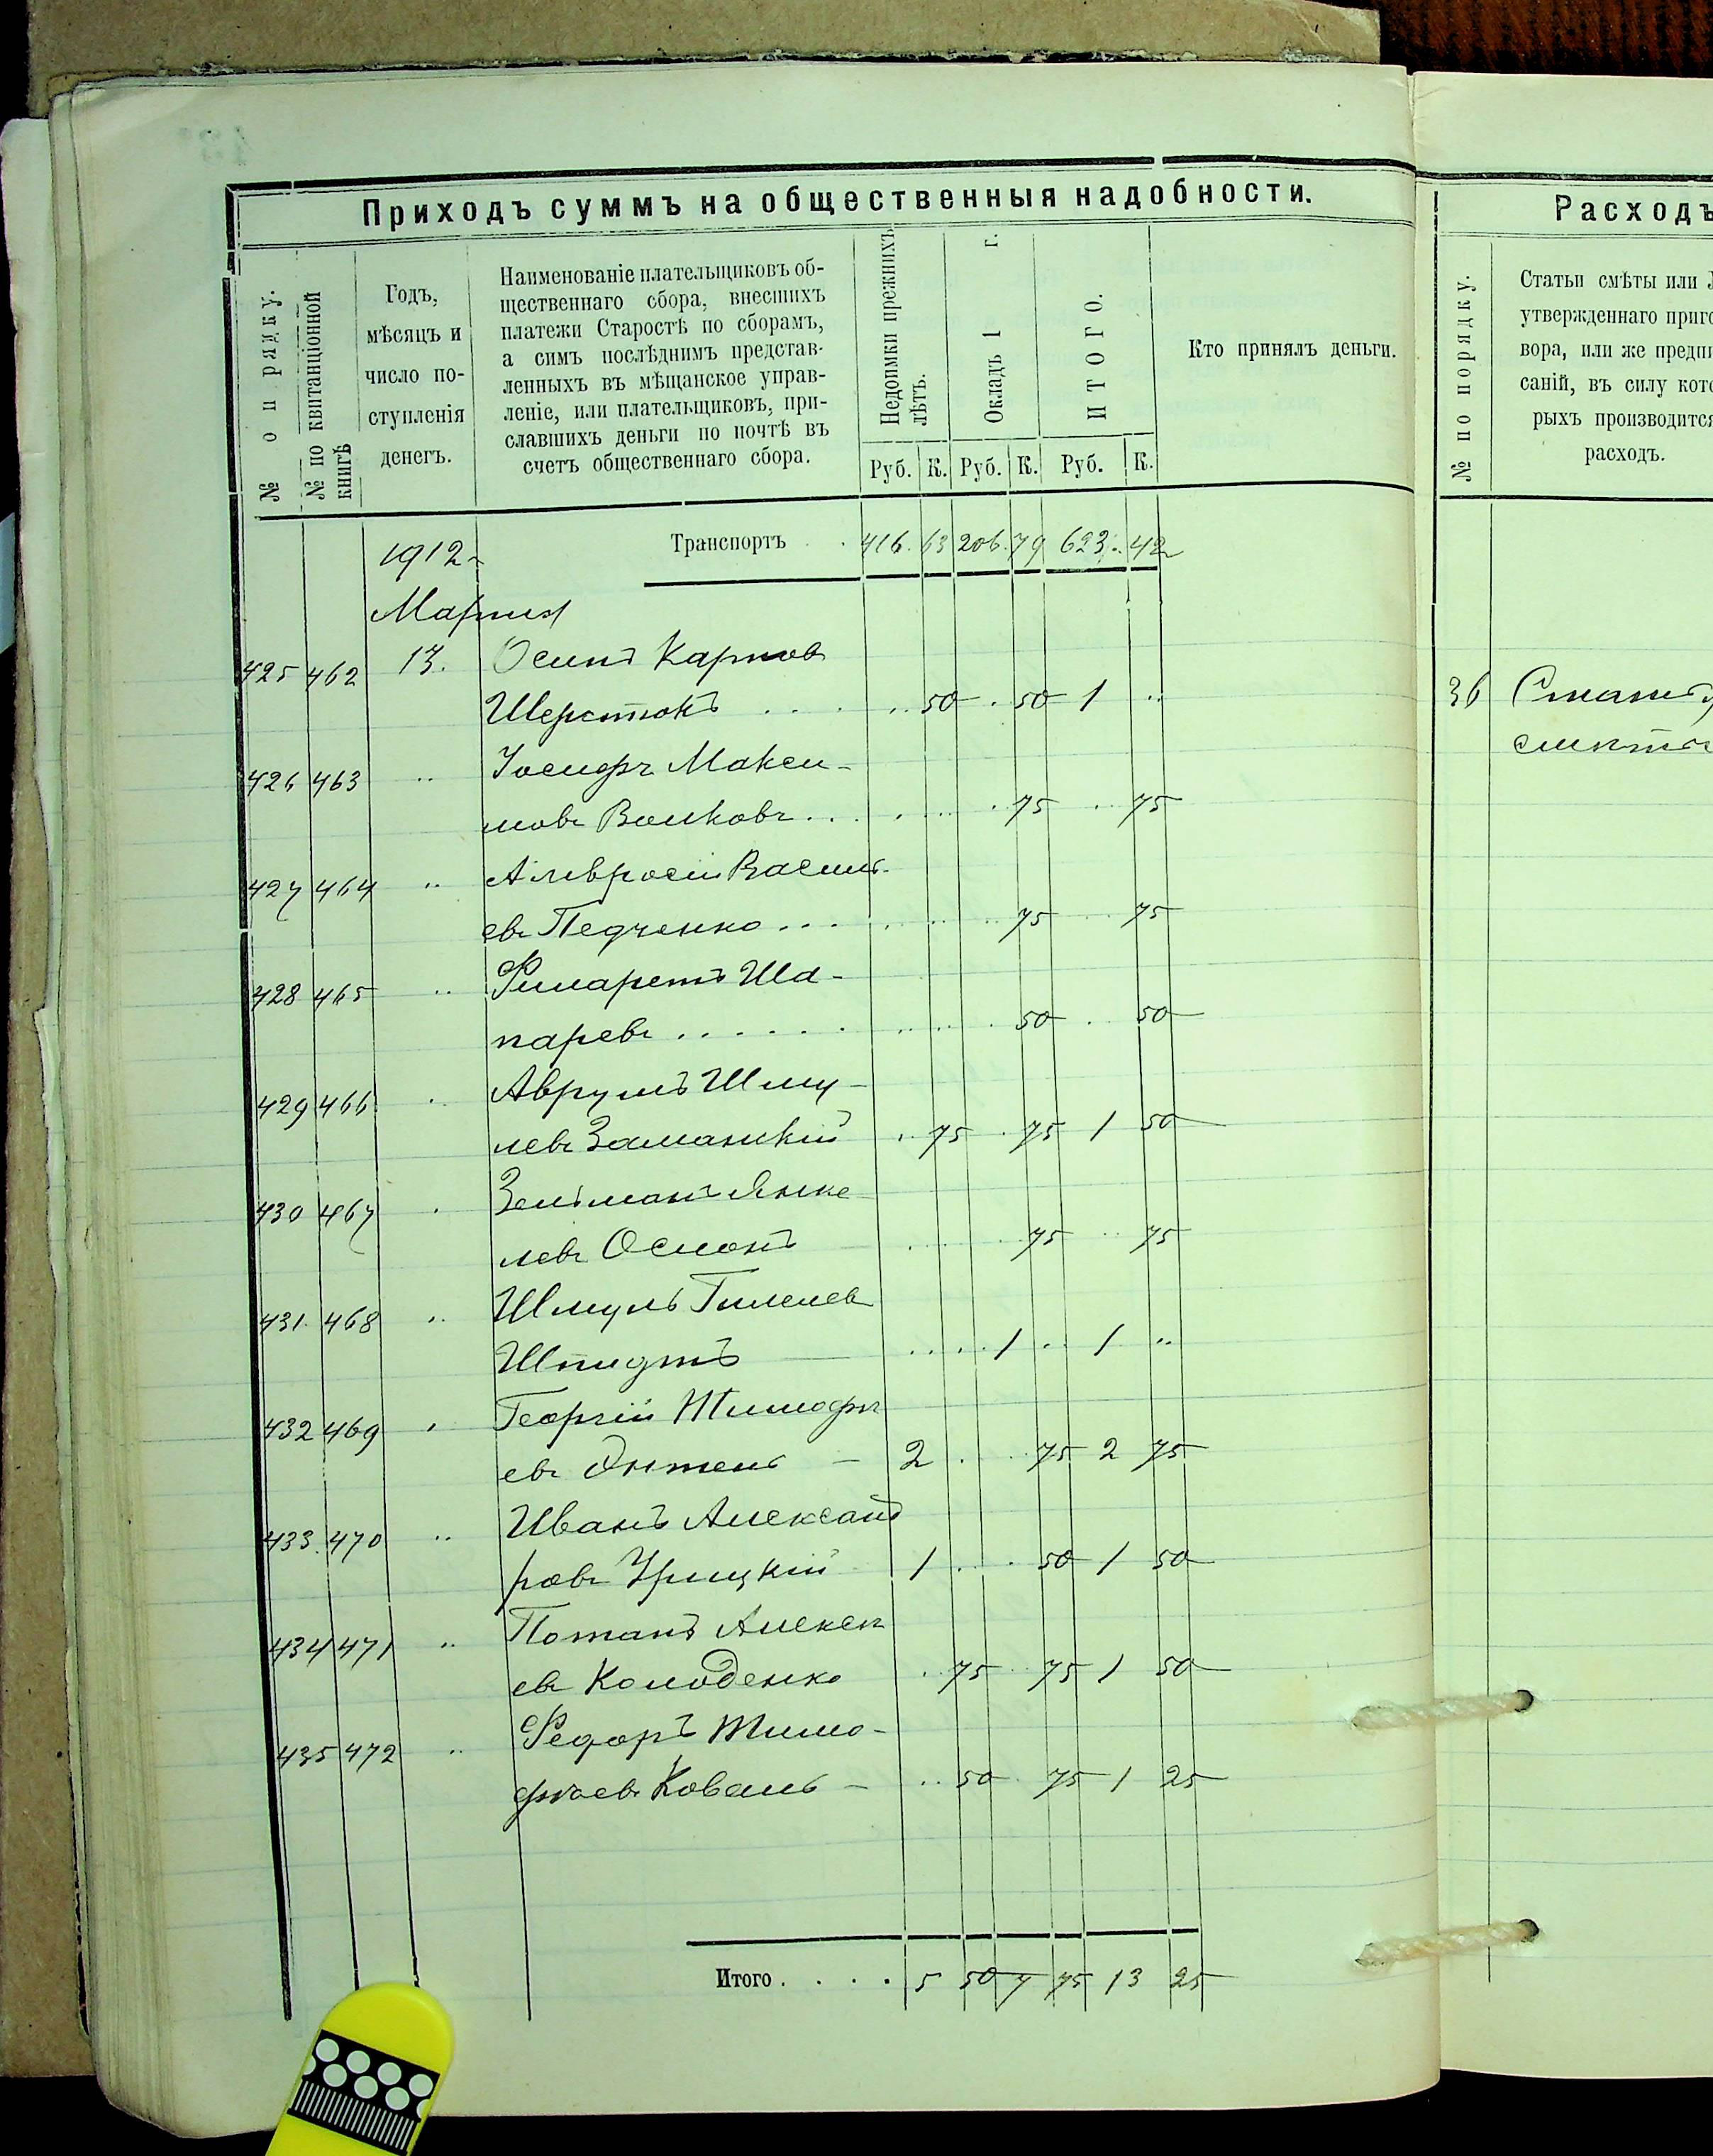 Приходъ суммъ на общественныя надобности.
№ по рядку.
№ по квитанціонной книгѣ
Годъ, мѣсяцъ и число поступленія денегъ.
Наименованіе плательщиковъ об-
щественнаго сбора, внесшихъ
платежи Старостѣ по сборамъ,
а симъ послѣднимъ представ-
ленныхъ въ мѣщанское управ-
леніе, или плательщиковъ, при-
славшихъ деньги по почтѣ въ
счетъ общественнаго сбора.
Недоимки прежнихъ лѣтъ.
Окладъ 1 г.
ИТОГО.
Кто принялъ деньги.
Руб. К. Руб. К. Руб. К.
1912 Транспортъ 416 63 206 79 623 42
Марта
425 462 13. Осипъ Карпов
Шерстюкъ 50 50 1 ..
426 463 .. Іосифъ Макси-
мовъ Волковъ 75 75
427 464 .. Амвросій Василь-
евъ Педченко 75 75
428 465 .. Филаретъ Ша-
паревъ 50 50
429 466 Аврумъ Шму-
левъ Заманскій 75 75 1 50
430 467 Зельманъ Янке
левъ 75 75
431 468 .. Шмуль
1 .. 1 ..
432 469 Георгій Тимофѣ
евъ 2 75 2 75
433 470 .. Иванъ Александ
ровъ Урицкій 1 50 1 50
434 471 .. Потапъ Алексѣ
евъ Колоденко 75 75 1 50
435 472 .. Федоръ Тимо-
фѣевъ Коваль 50 75 1 25
Итого 5 50 7 75 13 25
Расходъ
№ по порядку.
Статьи смѣты или
утвержденнаго приго
вора, или же предпи
саній, въ силу кото
рыхъ производится
расходъ.
36